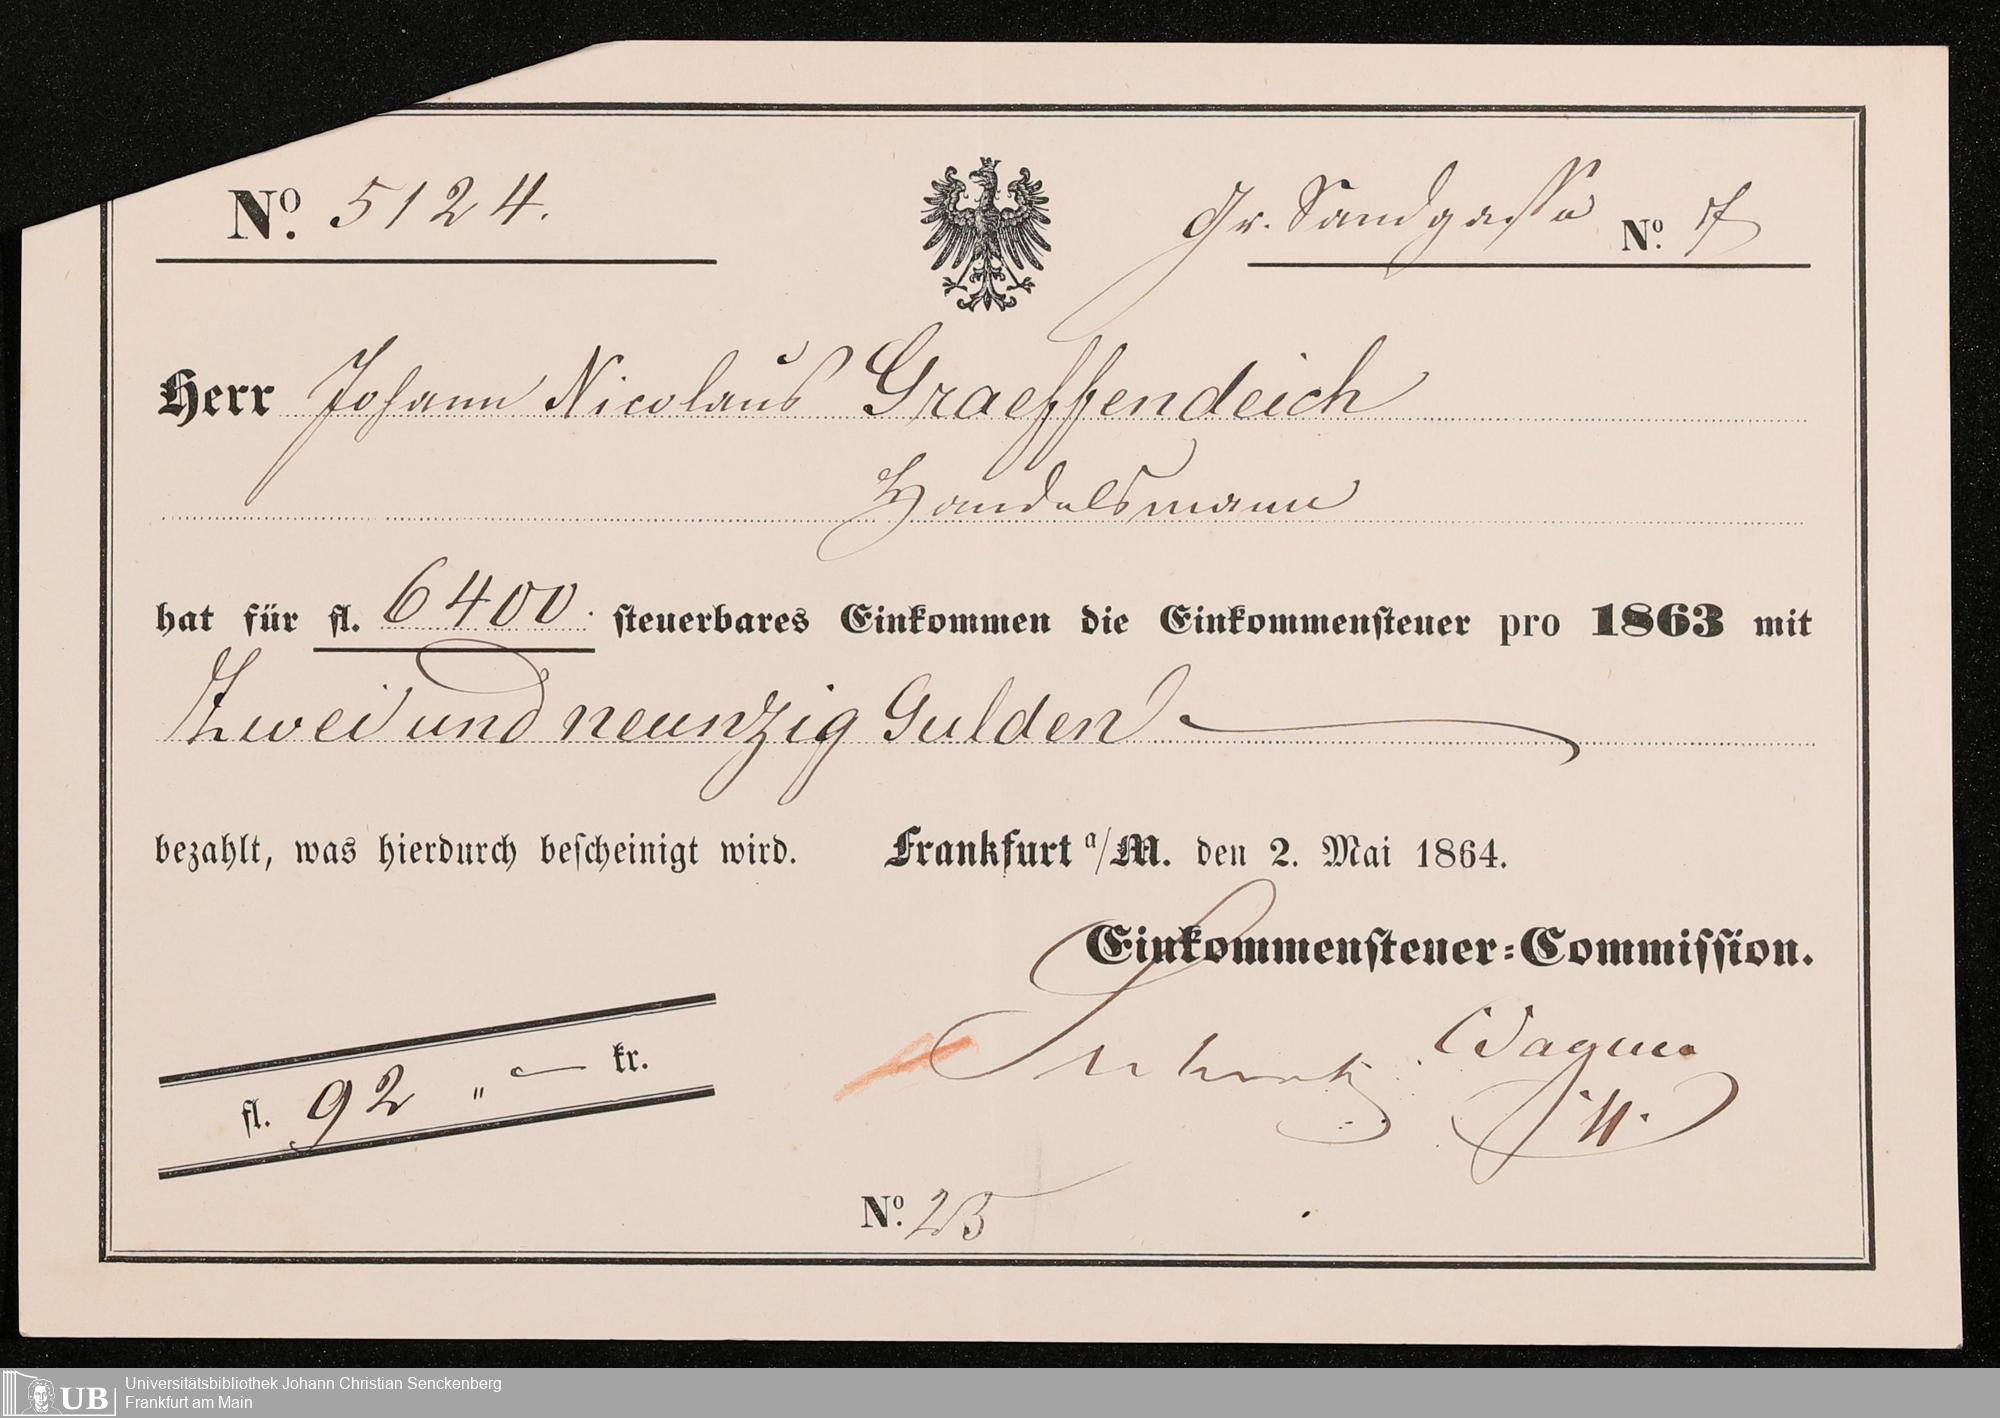 No. 5124.
Gr. Sandgasse No.
Herr Johann Nicolaus Graeffendeich
Handelsmann
hat für fl. 6400. steuerbares Einkommen die Einkommensteuer pro 1863 mit
Zwei und neunzig Gulden
bezahlt, was hierdurch bescheinigt wird. Frankfurt a/M. den 2. Mai 1864.
Einkommensteuer-Commission.
Wagner
fl. 92 " — kr.
No.
UB
Universitätsbibliothek Johann Christian Senckenberg
Frankfurt am Main